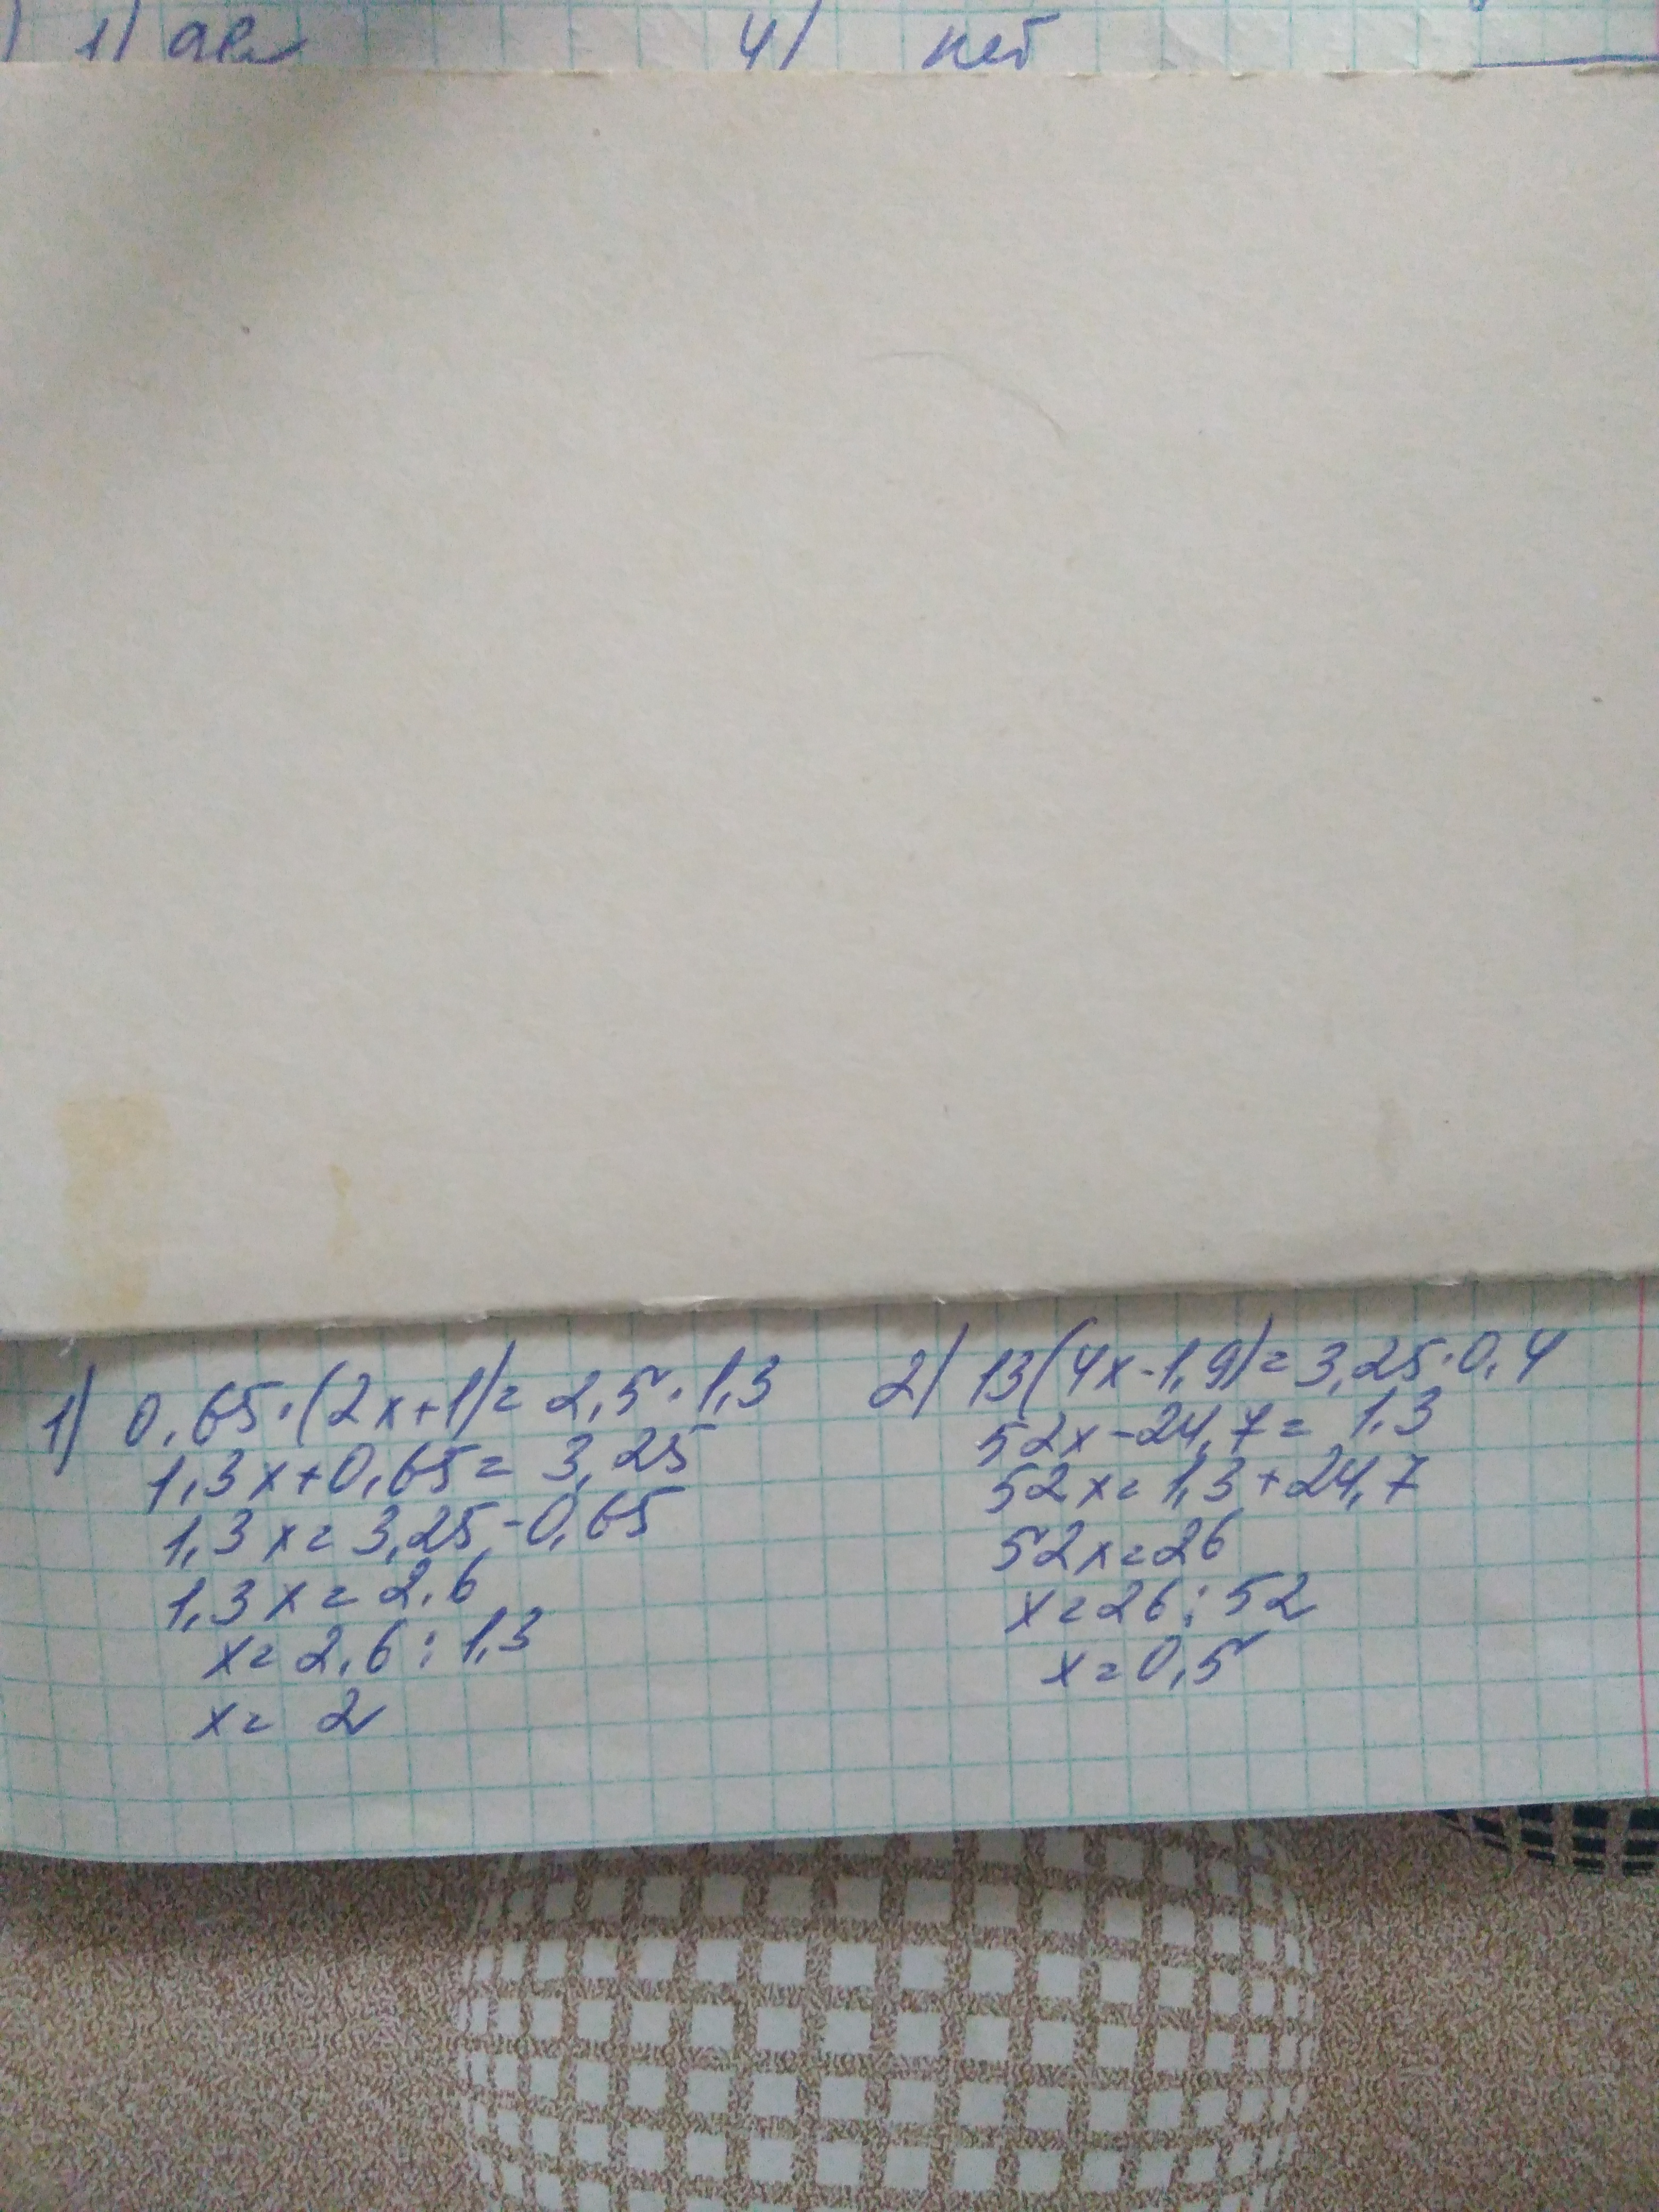 1) 4) нет
1) 0,65·(2x+1)=2,5·1,3
1,3x+0,65=3,25
1,3x=3,25-0,65
1,3x=2,6
x=2,6:1,3
x=2
2) 13(4x-1,9)=3,25·0,4
52x-24,7=1,3
52x=1,3+24,7
52x=26
x=26:52
x=0,5